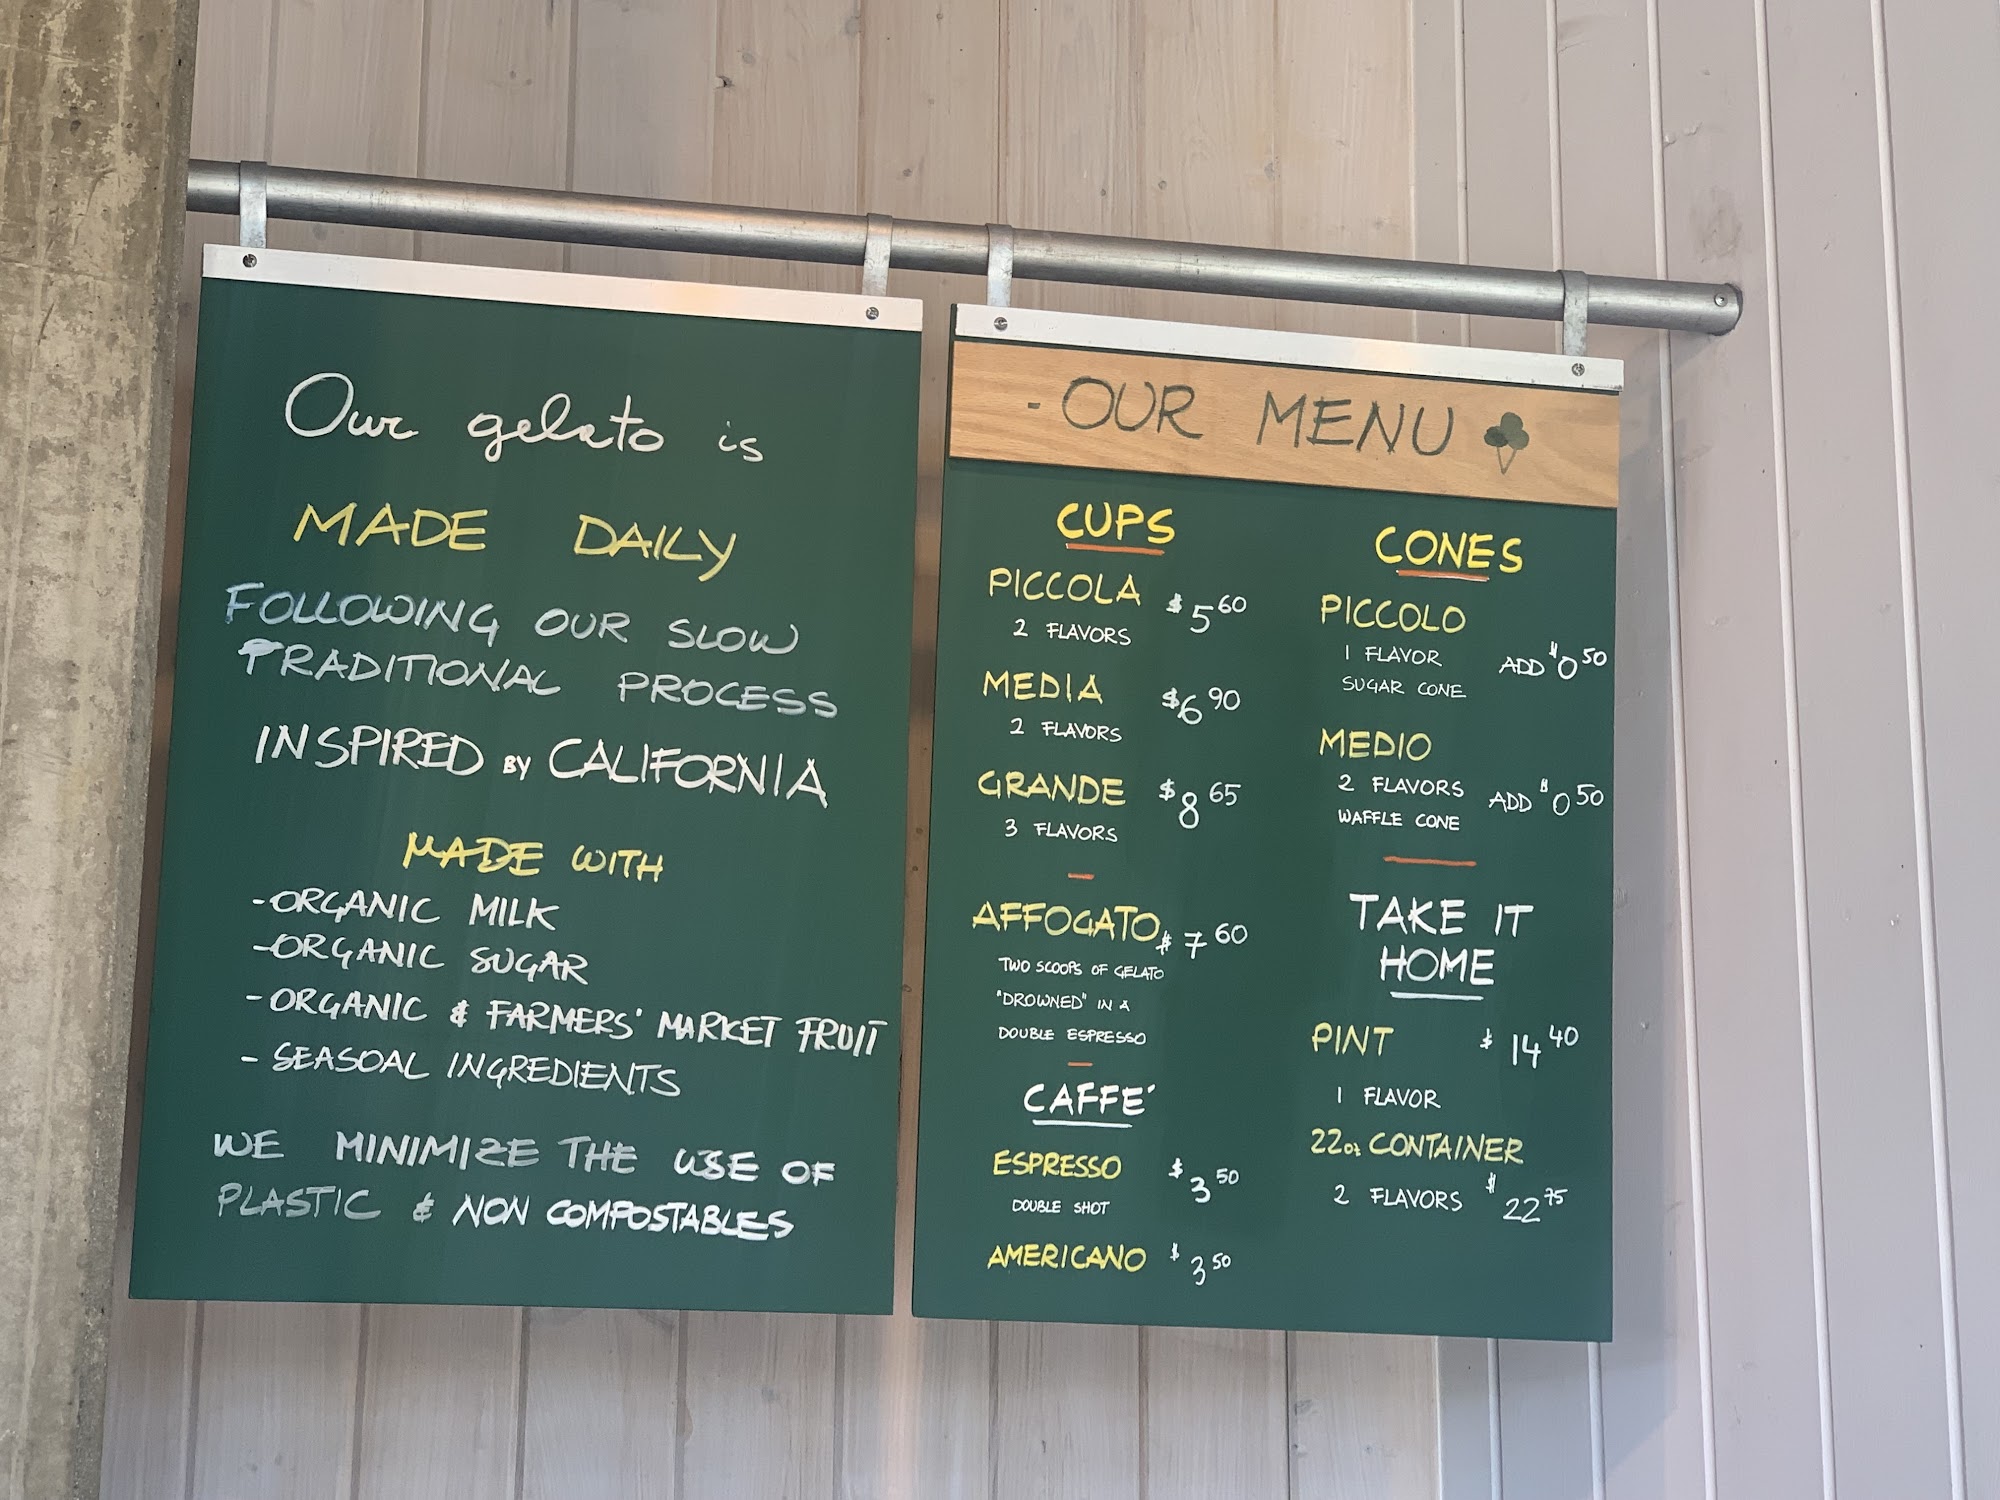 Our gelato is
MADE DAILY
FOLLOWING OUR SLOW
TRADITIONAL PROCESS
INSPIRED BY CALIFORNIA
MADE WITH
-ORGANIC MILK
-ORGANIC SUGAR
-ORGANIC & FARMERS' MARKET FRUIT
- SEASOAL INGREDIENTS
WE MINIMIZE THE USE OF
PLASTIC & NON COMPOSTABLES
- OUR MENU
CUPS
PICCOLA $5 60
2 FLAVORS
MEDIA $6 90
2 FLAVORS
GRANDE $8 65
3 FLAVORS
AFFOGATO $7 60
TWO SCOOPS OF GELATO
"DROWNED" IN A
DOUBLE ESPRESSO
CAFFE'
ESPRESSO $3 50
DOUBLE SHOT
AMERICANO $3 50
CONES
PICCOLO
1 FLAVOR ADD $0 50
SUGAR CONE
MEDIO
2 FLAVORS ADD $0 50
WAFFLE CONE
TAKE IT
HOME
PINT $14 40
1 FLAVOR
22oz CONTAINER
2 FLAVORS $22 75